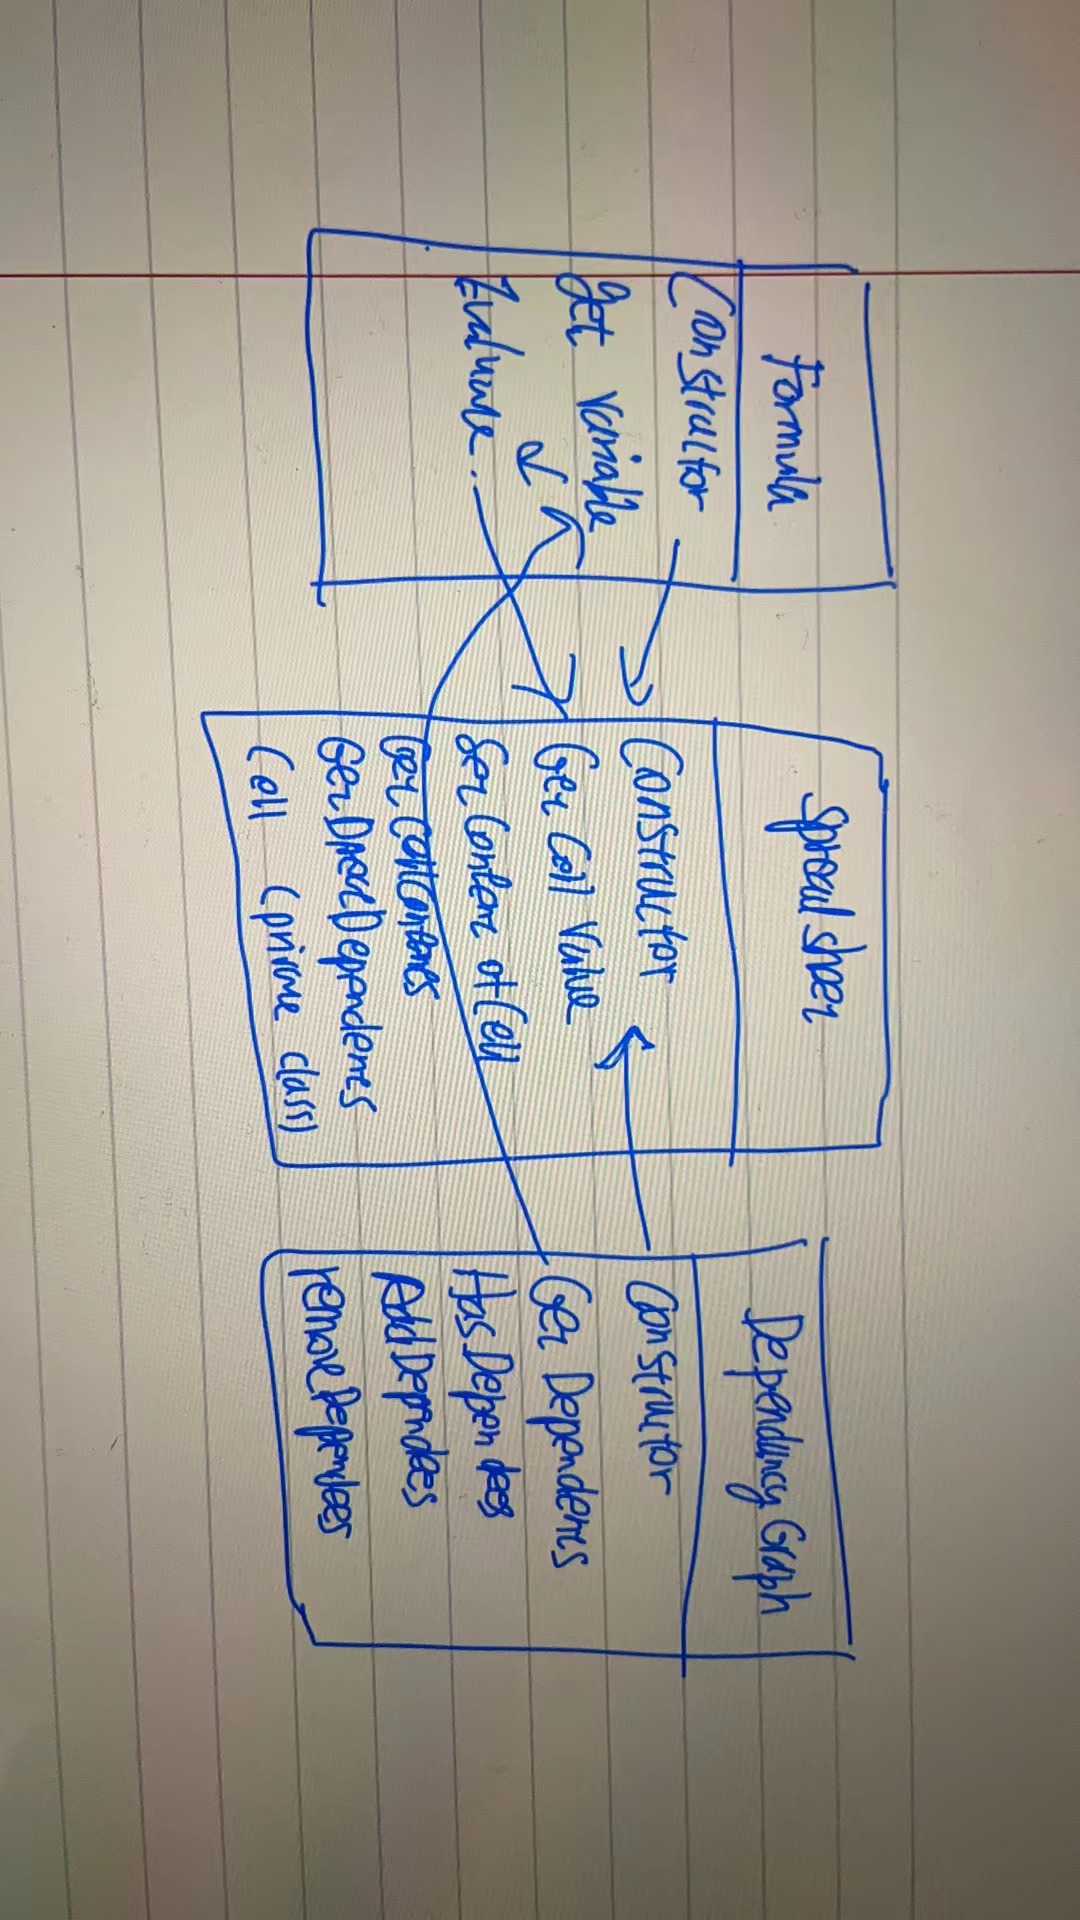 Formula
Constructor
get variable
Evaluate
Spreadsheet
Constructor
Get Cell Value
Set Content of Cell
Get Cell Contents
Get Direct Dependents
Cell (private class)
Dependancy Graph
Constructor
Get Dependents
Has Dependees
Add Dependees
remove Dependees